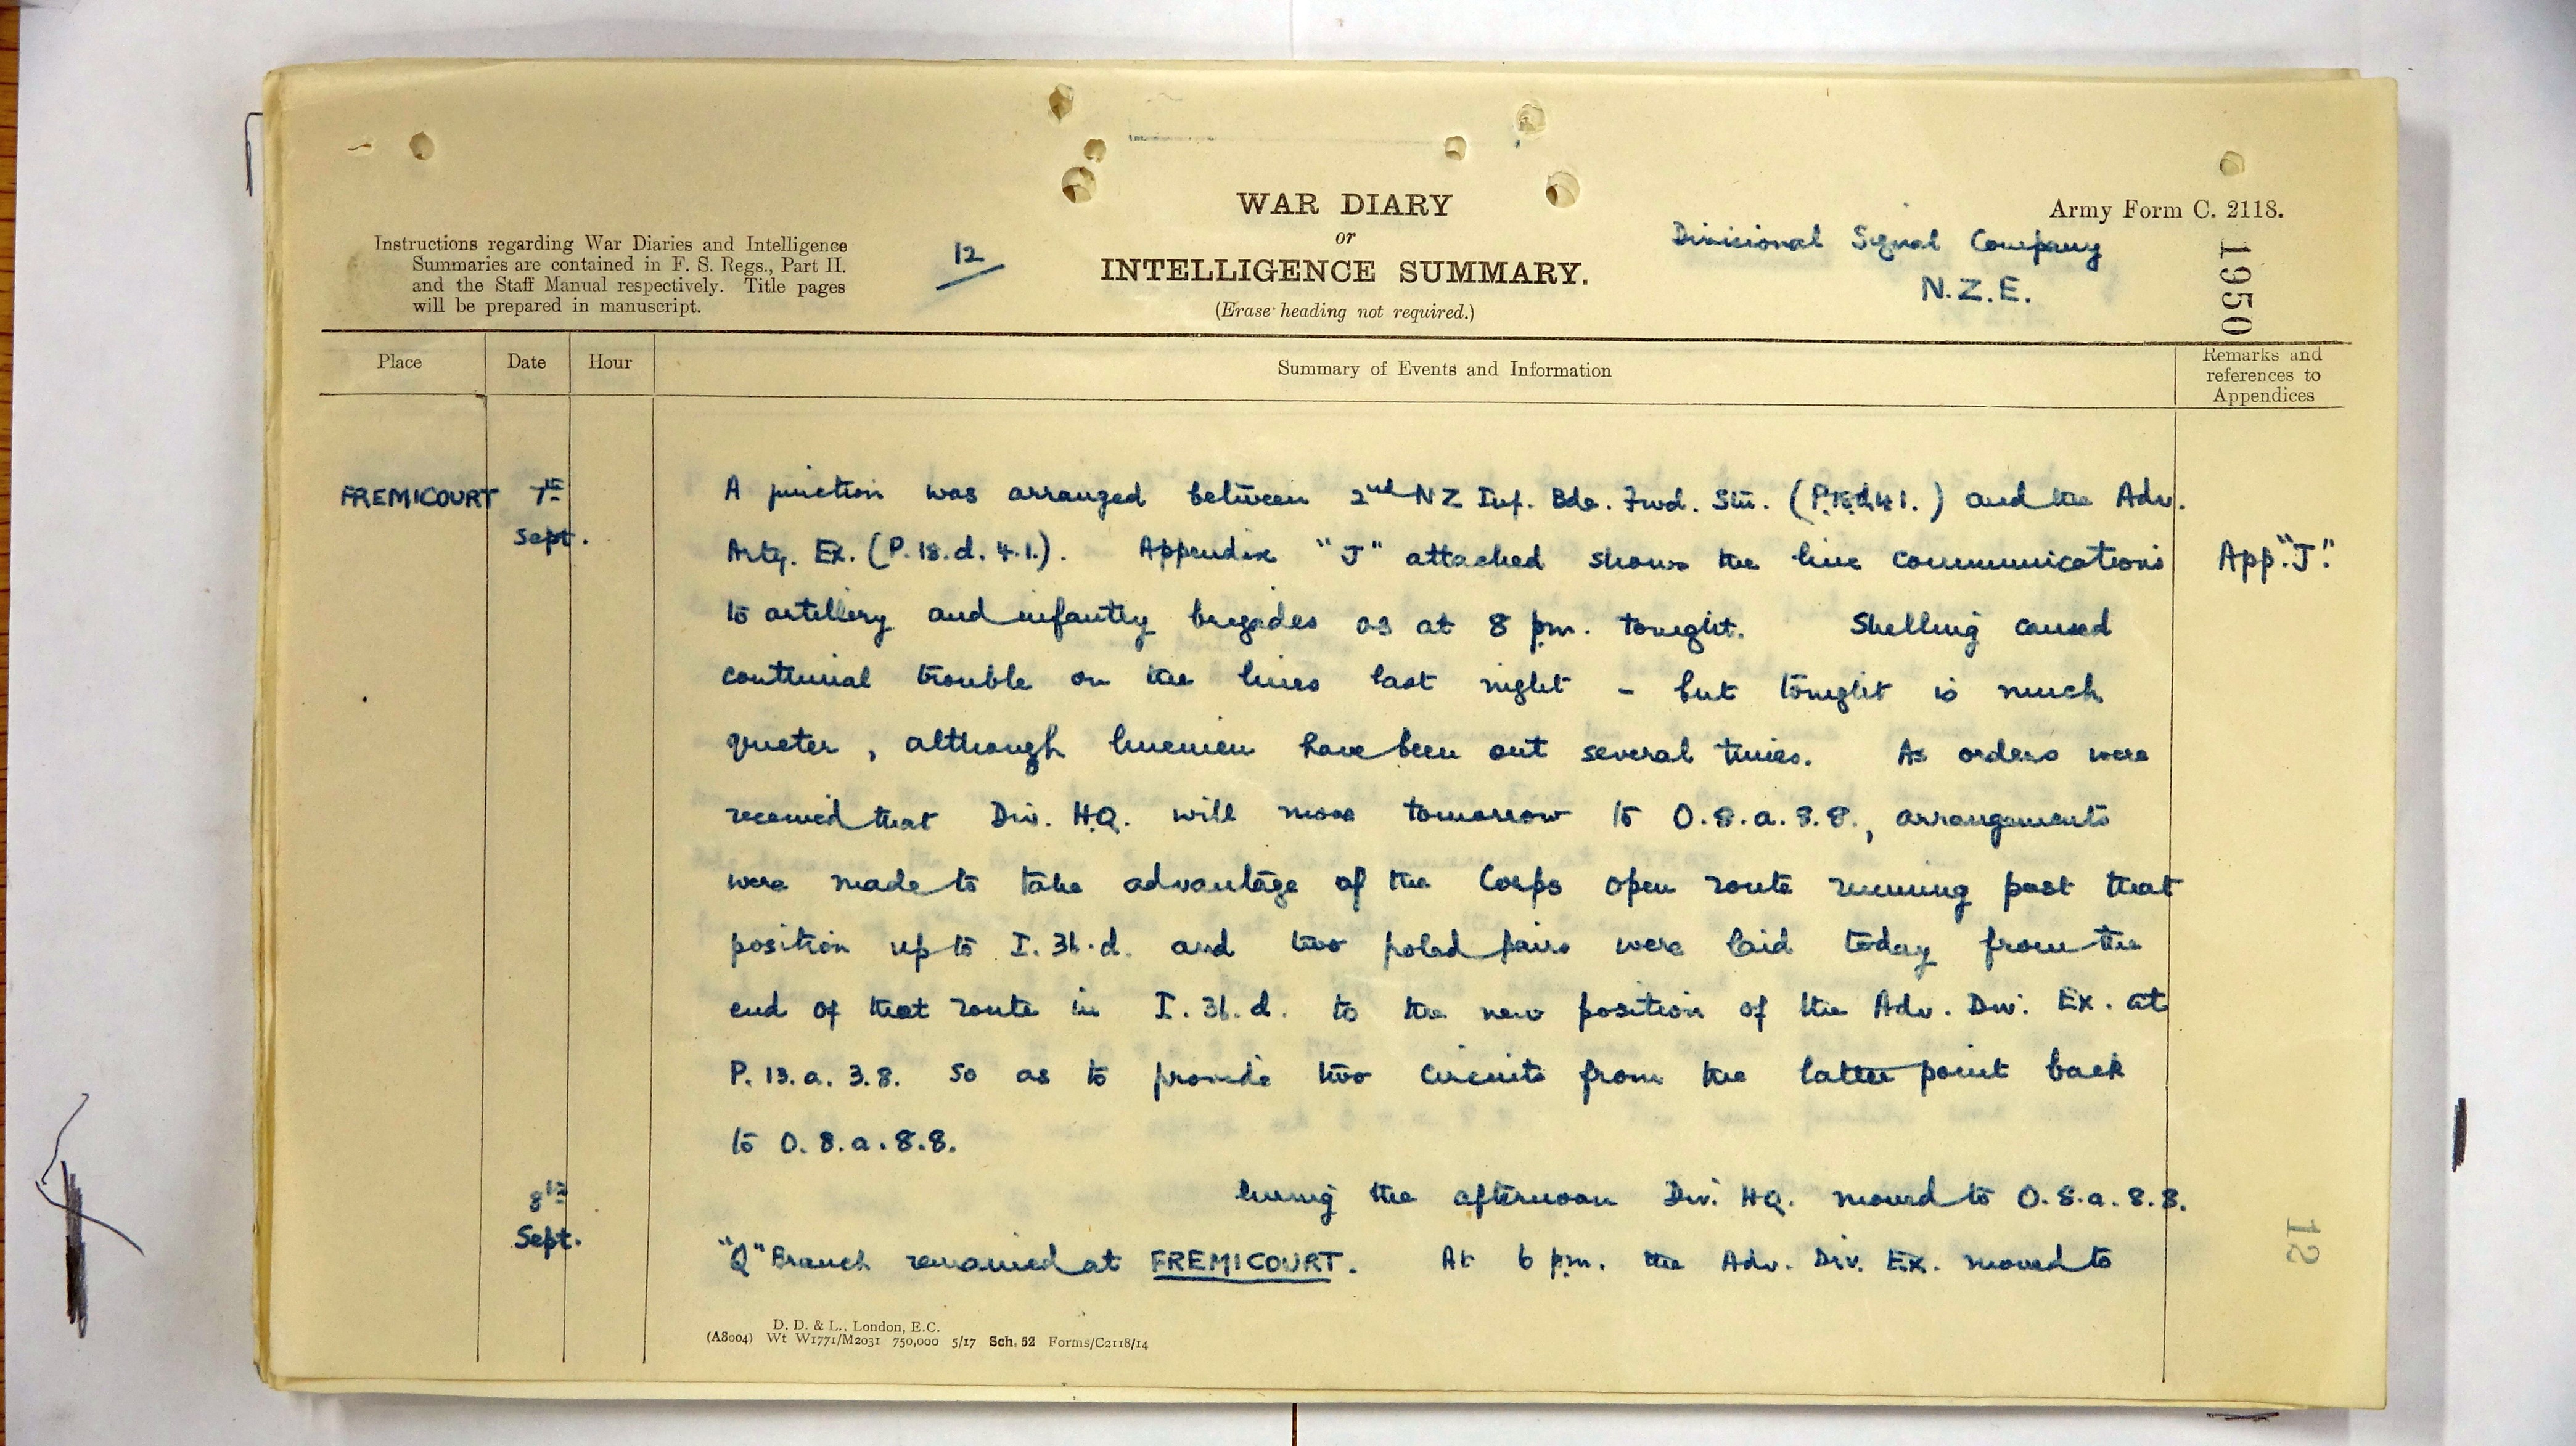 WAR DIARY
or
INTELLIGENCE SUMMARY.
(Erase heading not required.)
Army Form C. 2118.
Instructions regarding War Diaries and Intelligence
Summaries are contained in F. S. Regs., Part II.
and the Staff Manual respectively. Title pages
will be prepared in manuscript.
12
Divisional Signal Company
N.Z.E.
1950
Place
Date
Hour
Summary of Events and Information
Remarks and
references to
Appendices
FREMICOURT
7th
Sept.
A junction was arranged between 2nd NZ Inf. Bde. Fwd. Stn. ( ) and the Adv.
Arty. Ex. (P.18.d.4.1.). Appendix "J" attached shows the line communications
App. "J".
to artillery and infantry brigades as at 8 pm. tonight. Shelling caused
continual trouble on the lines last night - but tonight is much
quieter, although linemen have been out several times. As orders were
received that Div. H.Q. will move tomorrow to O.8.a.8.8., arrangements
were made to take advantage of the Corps open route running past that
position up to I.36.d. and two poled pairs were laid today from the
end of that route in I.36.d. to the new position of the Adv. Div. Ex. at
P.13.a.3.8. so as to provide two circuits from the latter point back
to O.8.a.8.8.
8th
Sept.
During the afternoon Div. HQ. moved to O.8.a.8.8.
"Q" Branch remained at FREMICOURT. At 6 pm. the Adv. Div. Ex. moved to
12
D. D. & L., London, E.C.
(A8004) Wt W1771/M2031 750,000 5/17 Sch. 52 Forms/C2118/14